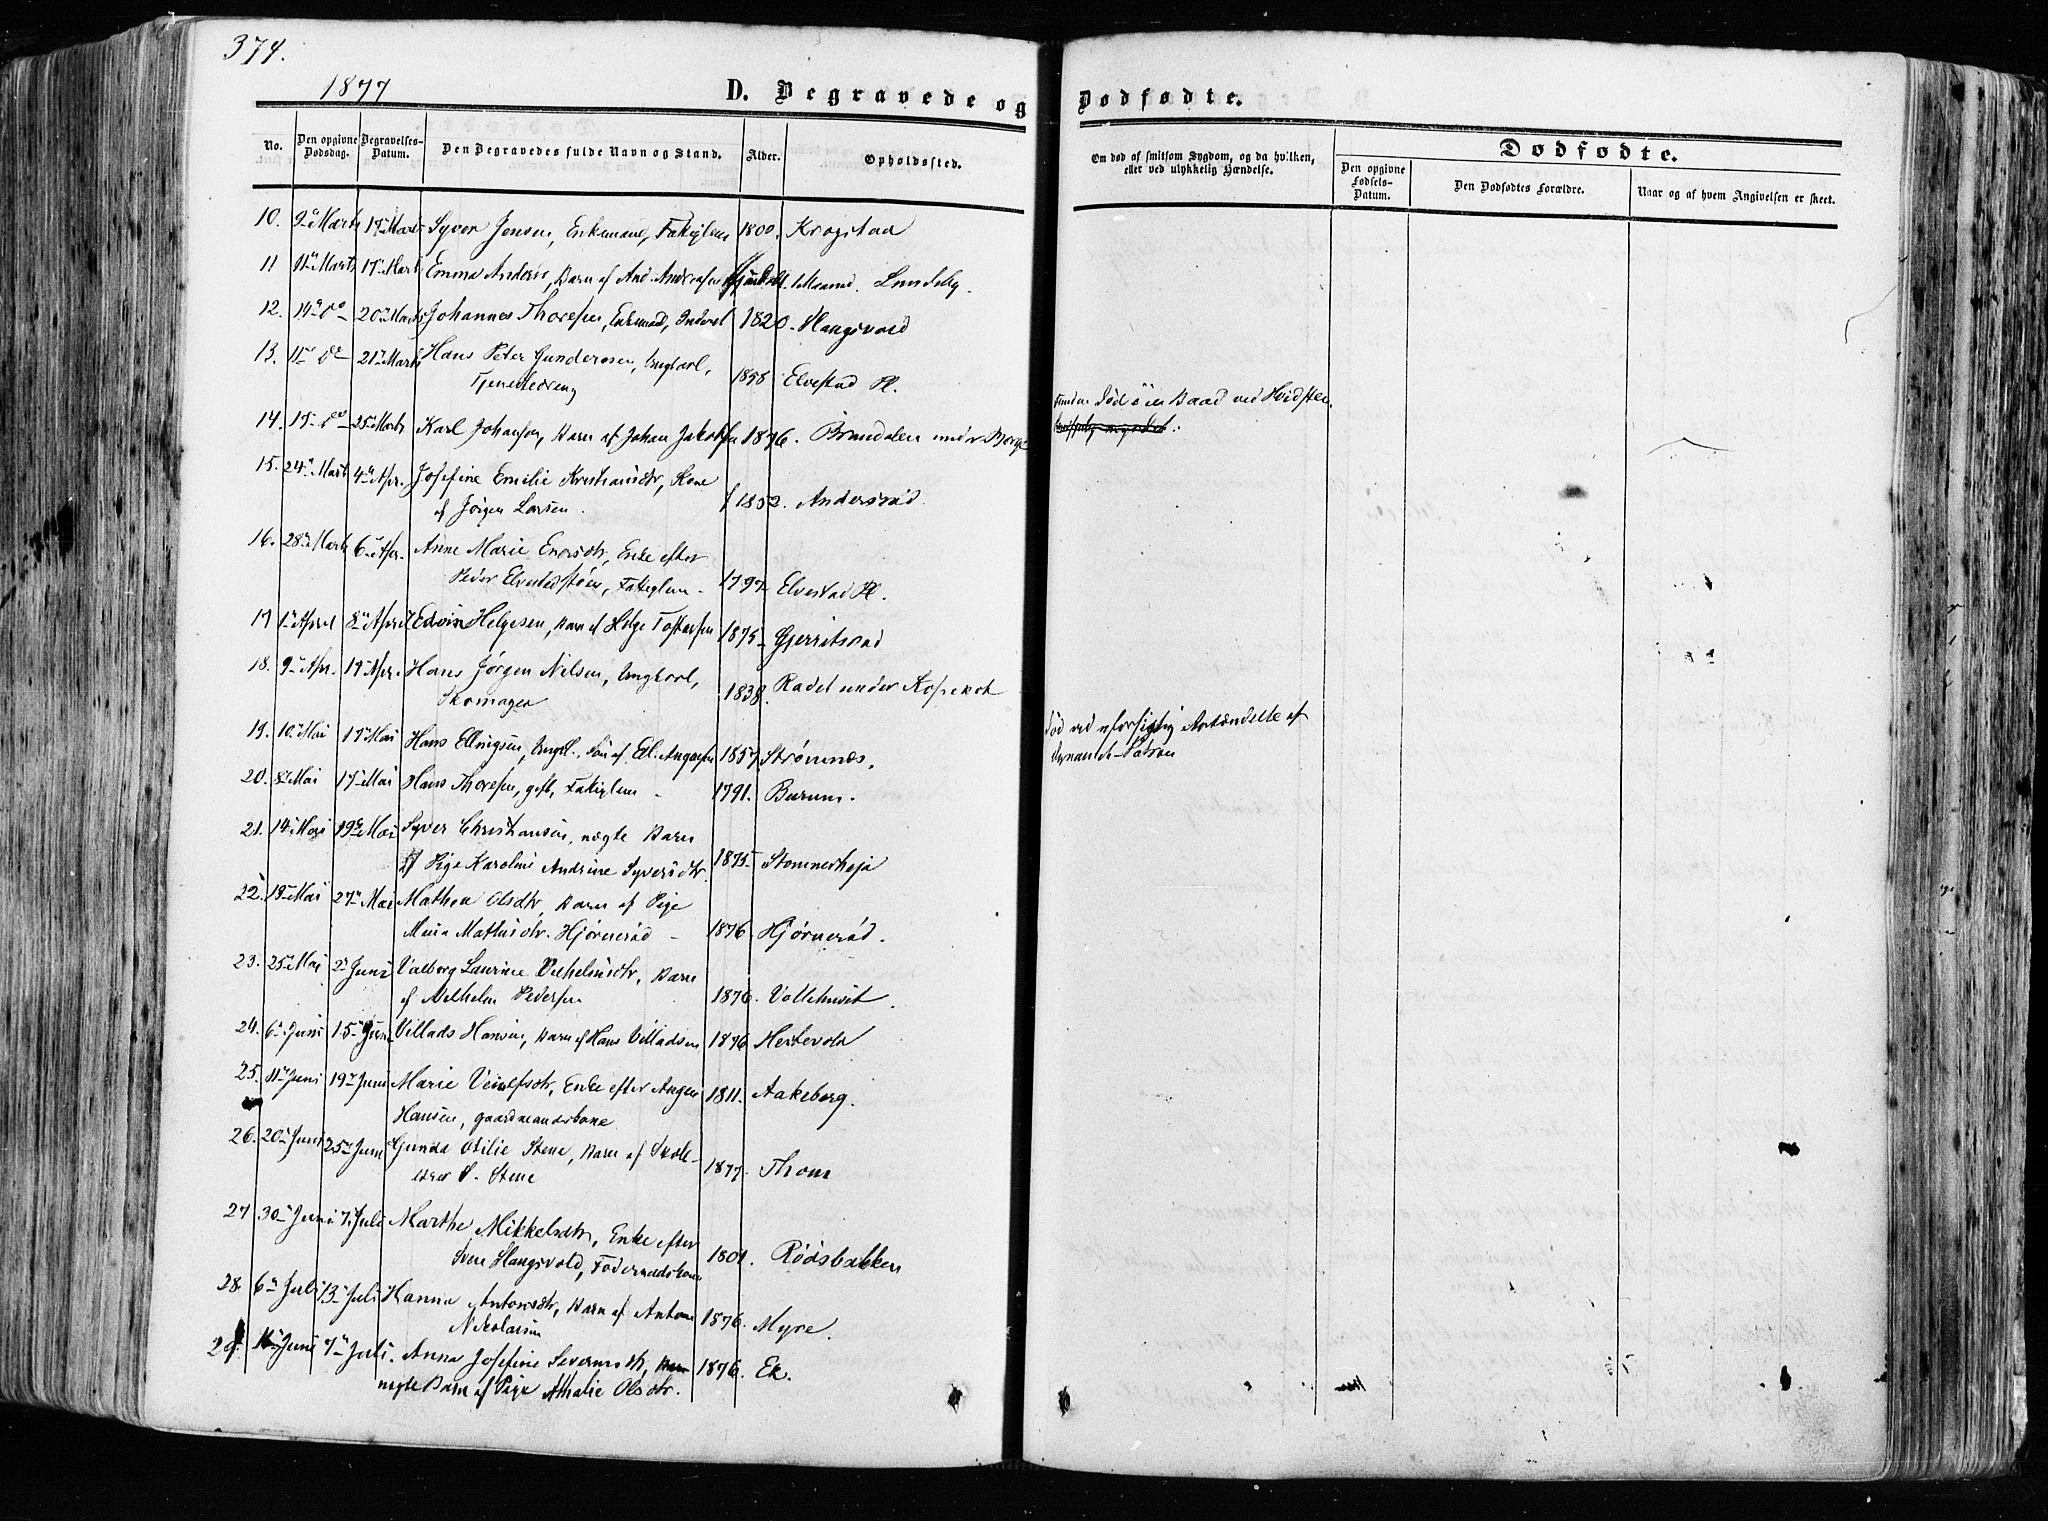 374.
1877
D. Begravede og Dødfødte.
No. Den opgivne Dødsdag. Begravelses-Datum. Den Begravedes fulde Navn og Stand. Alder. Opholdssted.
Om død af smitsom Sygdom, og da hvilken, eller ved ulykkelig Hændelse.
Dødfødte.
Den opgivne Fødsels-Datum. Den Dødfødtes Forældre. Naar og af hvem Angivelsen er skeet.
10. 9de Marts 17de Marts Syver Jensen, Enkemand, Fattiglem 1800. Krogstad
11 11te Marts 17de Marts Emma Anders, Barn af And. Andreasen Maaned. Lundeby.
12. 14de do 20de Marts Johannes Thoresen, Enkemand, Inderst 1820. Haugsvold
13. 11te do 21de Marts Hans Peter Gundersen, Ungkarl,
Tjenestedreng 1858 Elvestad Pl.
Funden død i en Baad ved Hvidsten.
14. 15 do 25de Marts Karl Johansen, Barn af Johan Jakobsen 1876. Brandalen under Bjerge
15. 24de Marts 4de Apr. Josefine Emilie Kristiansdtr, Kone
af Jørgen Larsen. 1852. Andersrød
16. 28de Marts 6te Apr. Anne Marie Enersdtr, Enke efter
Peder Elvestadstøen, Fattiglem - 1797 Elvestad Pl.
17 1ste April 8de April Edvin Helgesen, Barn af Helge Tostensen 1875 - Gjerritsrød
18. 9de Apr. 19de Apr. Hans Jørgen Nilsen, Ungkarl,
Skomager 1838. Rødet under Kopstok
19. 10de Mai 17de Mai Hans Ellingsen, Ungk., Søn af El. Aagesen 1857 Strømnæs.
Død ved uforsigtig Antændelse af
Dynamit-Patron
20. 8de Mai 17de Mai Hans Thoresen, gift, Fattiglem - 1791. Burum.
21. 14de Mai 19de Mai Syver Christiansen, uægte Barn
af Pige Karoline Andrine Syversdtr. 1875 Stommerhøja
22. 18de Mai 27de Mai Mathea Olsdtr, Barn af Pige
Maria Mathisdtr. Hjørnerød - 1876. Hjørnerød.
23. 25de Mai 2de Juni Valborg Laurine Vilhelmsdtr, Barn
af Vilhelm Pedersen 1876. Vollehuset.
24. 6te Juni 15de Juni Villads Hansen, Barn af Hans Villadsen 1876 Hestevold
25. 11te Juni 19de Juni Marie Veielfsdtr, Enke efter Aagen
Hansen, gaardmandskone 1811. Aakeberg.
26. 20de Juni 25de Juni Gunda Otilie Stene, Barn af Skole-
lærer P. Stene 1877. Thom
27 30de Juni 7. Juli Marthe Mikkelsdtr, Enke efter
Iver Haugsvold, Føderaadskone 1801. Rødsbakken
28. 6te Juli 13de Juli Hanna Antonsdtr, Barn af Anton
Nikolaisen 1876. Myre.
29. 16de Juni 7de Juli. Anna Josefine Severinsdtr,
uægte Barn af Pige Athalie Olsdtr. 1876. Ek.